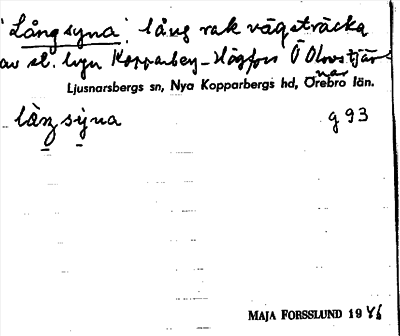 'Långsyna'. lång rak vägsträcka
av sl. Kopparberg - Högfors Ö Olovstjär-
nar
Ljusnarsbergs sn, Nya Kopparbergs hd, Örebro län.
syna g 93
MAJA FORSSLUND 1946